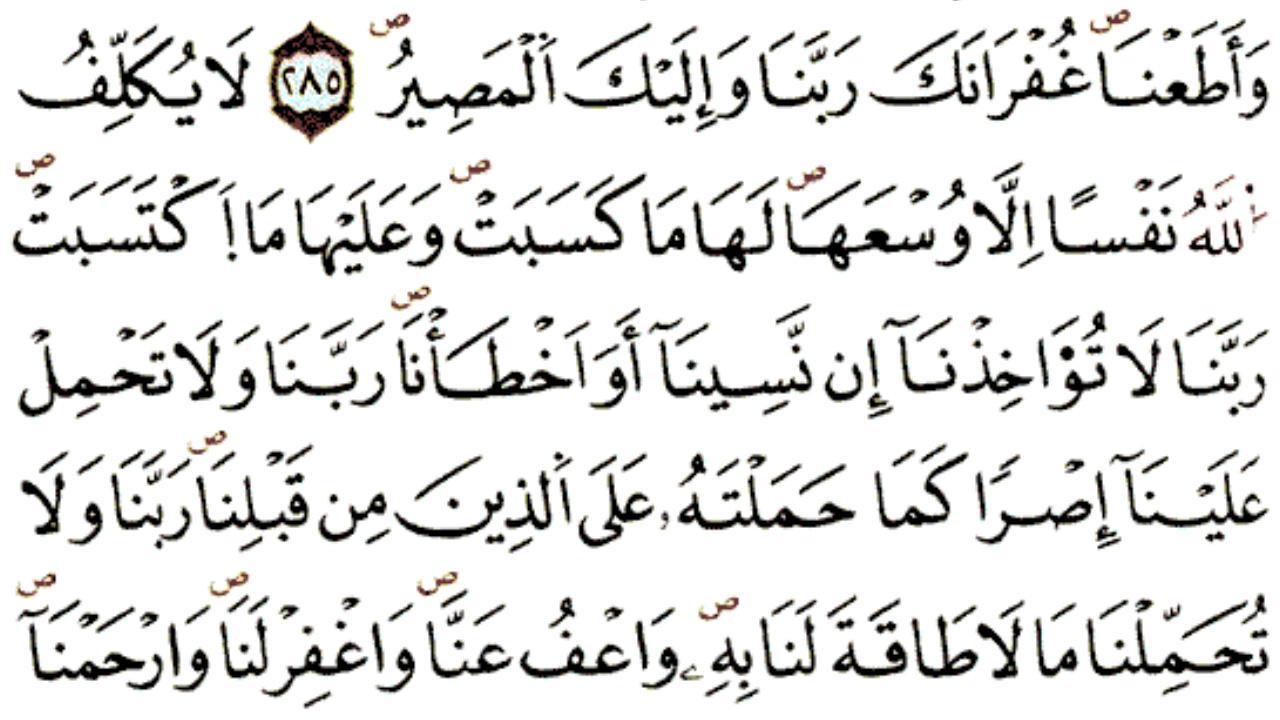 وَأَطَعْنَا ۖ غُفْرَانَكَ رَبَّنَا وَإِلَيْكَ اَ۬لْمَصِيرُ ۖ ٢٨٥ لَا يُكَلِّفُ
اُ۬للَّهُ نَفْسًا اِلَّا وُسْعَهَا ۖ لَهَا مَا كَسَبَتْ ۖ وَعَلَيْهَا مَا اَ۪كْتَسَبَتْ ۖ
رَبَّنَا لَا تُؤَاخِذْنَآ إِن نَّسِينَآ أَوَ اَخْطَأْنَا ۖ رَبَّنَا وَلَا تَحْمِلْ
عَلَيْنَآ إِصْرًا كَمَا حَمَلْتَهُۥ عَلَى اَ۬لذِينَ مِن قَبْلِنَا ۖ رَبَّنَا وَلَا
تُحَمِّلْنَا مَا لَا طَاقَةَ لَنَا بِهِۦ ۖ وَاعْفُ عَنَّا ۖ وَاغْفِرْ لَنَا ۖ وَارْحَمْنَآ ۖ